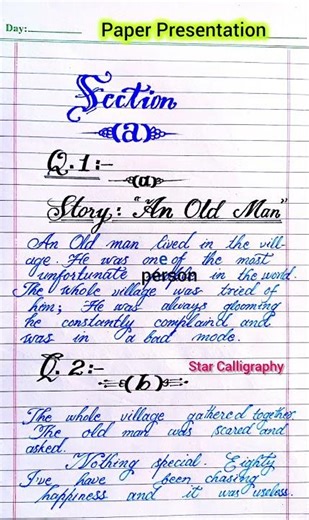 Paper Presentation
Day:
Section
(a)
Q.1:-
(a)
Story: "An Old Man"
An Old man lived in the vill-
age. He was one of the most
unfortunate person in the world.
The whole village was tried of
him; He was always glooming
he constantly complaind and
was in a bad mode.
Q. 2:-
Star Calligraphy
(b)
The whole village gathered together
The old man was scared and
asked.
Nothing special. Eighty
I've have been chasing
happiness and it was useless.